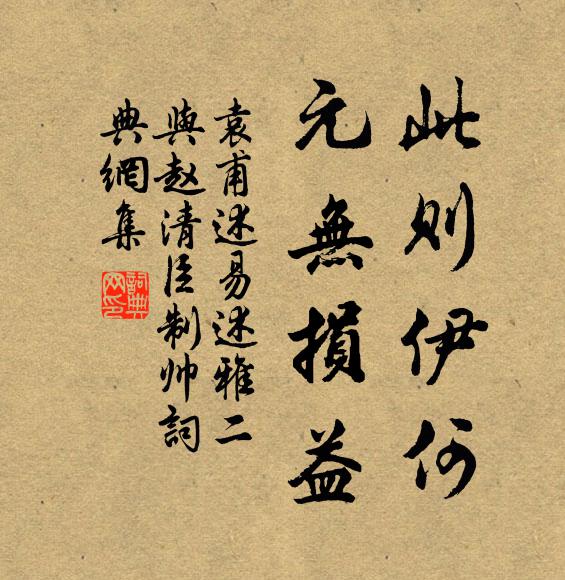 此則伊何
元無損益
袁甫述易述雅二
與赵清臣制帅詞
典網集
詞典
网印